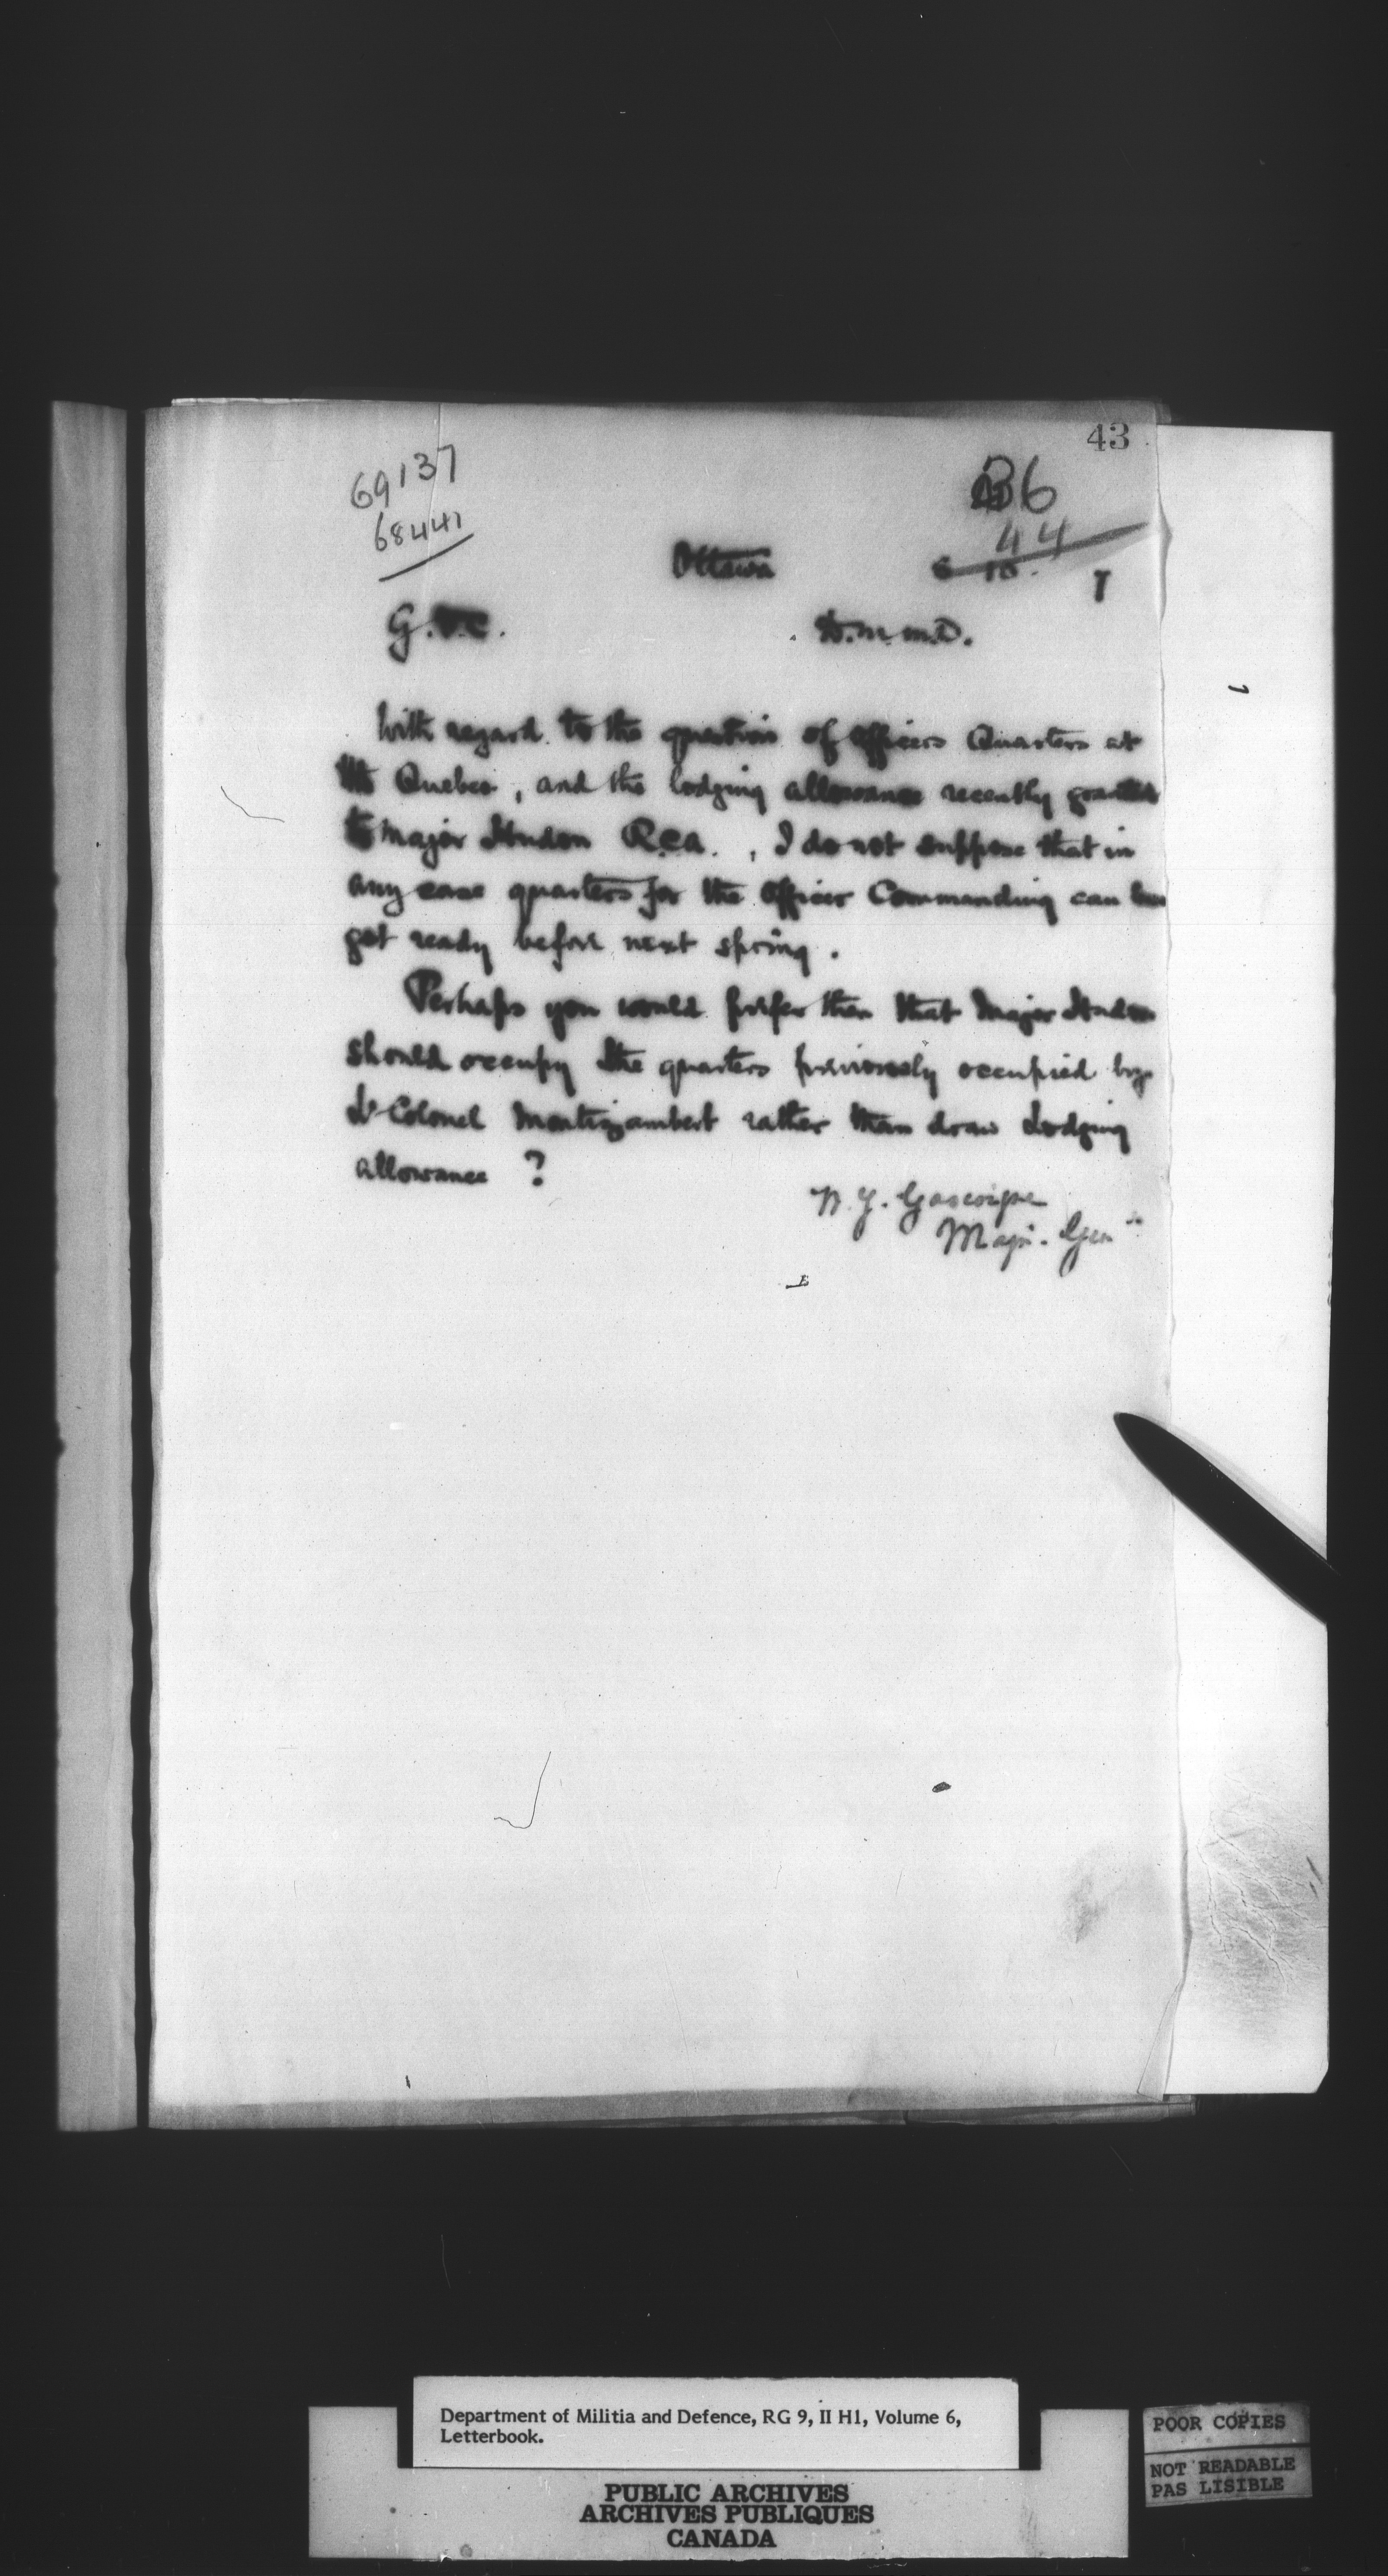 43
69137
68441
36
44
Ottawa
G.O.C.
H.M.M.D.
With regard to the question of Officers Quarters at
Quebec, and the lodging allowance recently granted
to Major Hudon R.C.A., I do not suppose that in
any case quarters for the Officer Commanding can
get ready before next spring.
Perhaps you would prefer then that Major Hudon
should occupy the quarters previously occupied by
Lt Colonel Montizambert rather than draw Lodging
allowance ?
W. J. Gascoigne
Maj. Gen
Department of Militia and Defence, RG 9, II H1, Volume 6,
Letterbook.
PUBLIC ARCHIVES
ARCHIVES PUBLIQUES
CANADA
POOR COPIES
NOT READABLE
PAS LISIBLE